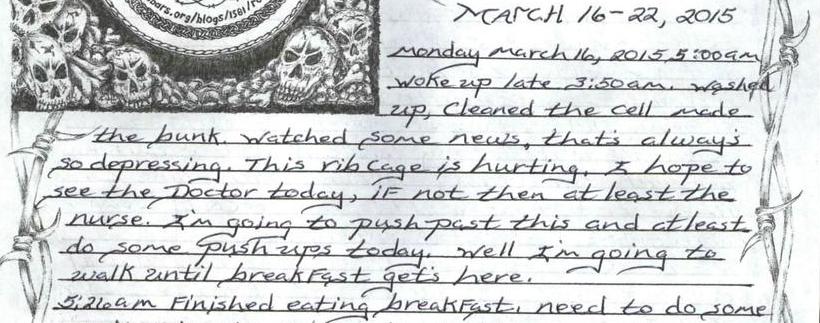 bars.org/blogs/1581/
MARCH 16-22, 2015
Monday March 16, 2015 5:00am
woke up late 3:50am. washed
up, Cleaned the cell made
the bunk. Watched some news, that's always
so depressing. This rib cage is hurting. I hope to
see the Doctor today, iF not then at least the
nurse. I'm going to push past this and atleast
do some push ups today. Well I'm going to
walk until breakFast get's here.
5:26am Finished eating breakFast. need to do some